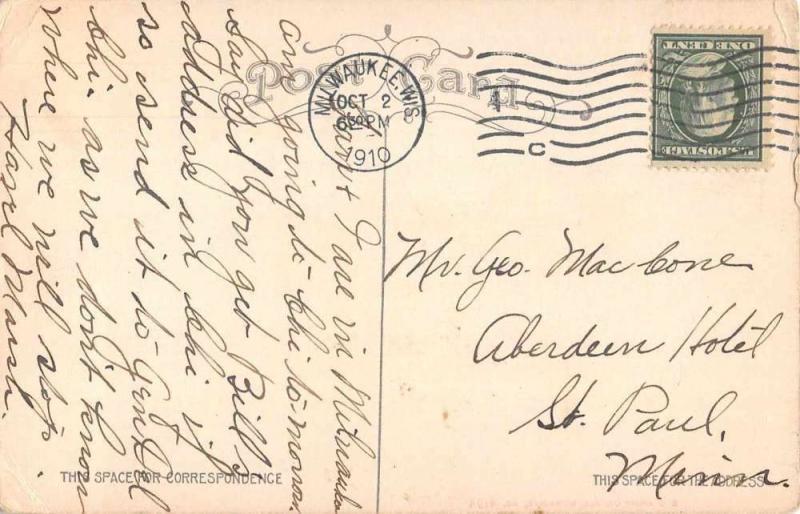 Post Card
MILWAUKEE, WIS.
OCT 2
630 PM
1910
C
ONE CENT
U.S. POSTAGE
I are in Milwaukee
and going to Chi tomorrow.
Say did you get Bill's
address in Chi if
so send it to Gen Del
Chi. as we don't know
where we will stop.
Hazel Marsh.
Mr. Geo. MacCone
Aberdeen Hotel
St. Paul,
Minn.
THIS SPACE FOR CORRESPONDENCE
THIS SPACE FOR THE ADDRESS